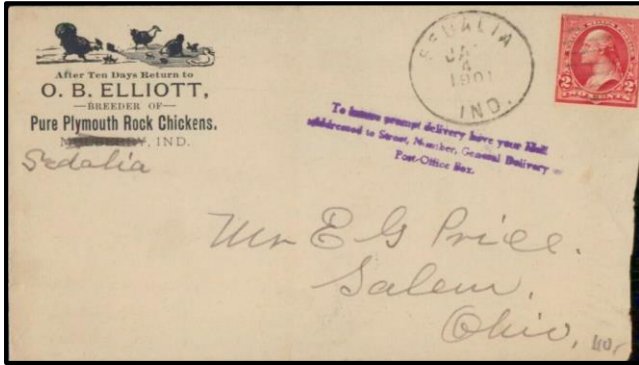 After Ten Days Return to
O. B. ELLIOTT,
—BREEDER OF—
Pure Plymouth Rock Chickens.
MULBERRY, IND.
Sedalia
SEDALIA
JAN
4
1901
IND.
2 2
TWO CENTS
To insure prompt delivery have your Mail
addressed to Street, Number, General Delivery or
Post-Office Box.
Mr E G Price.
Salem,
Ohio,